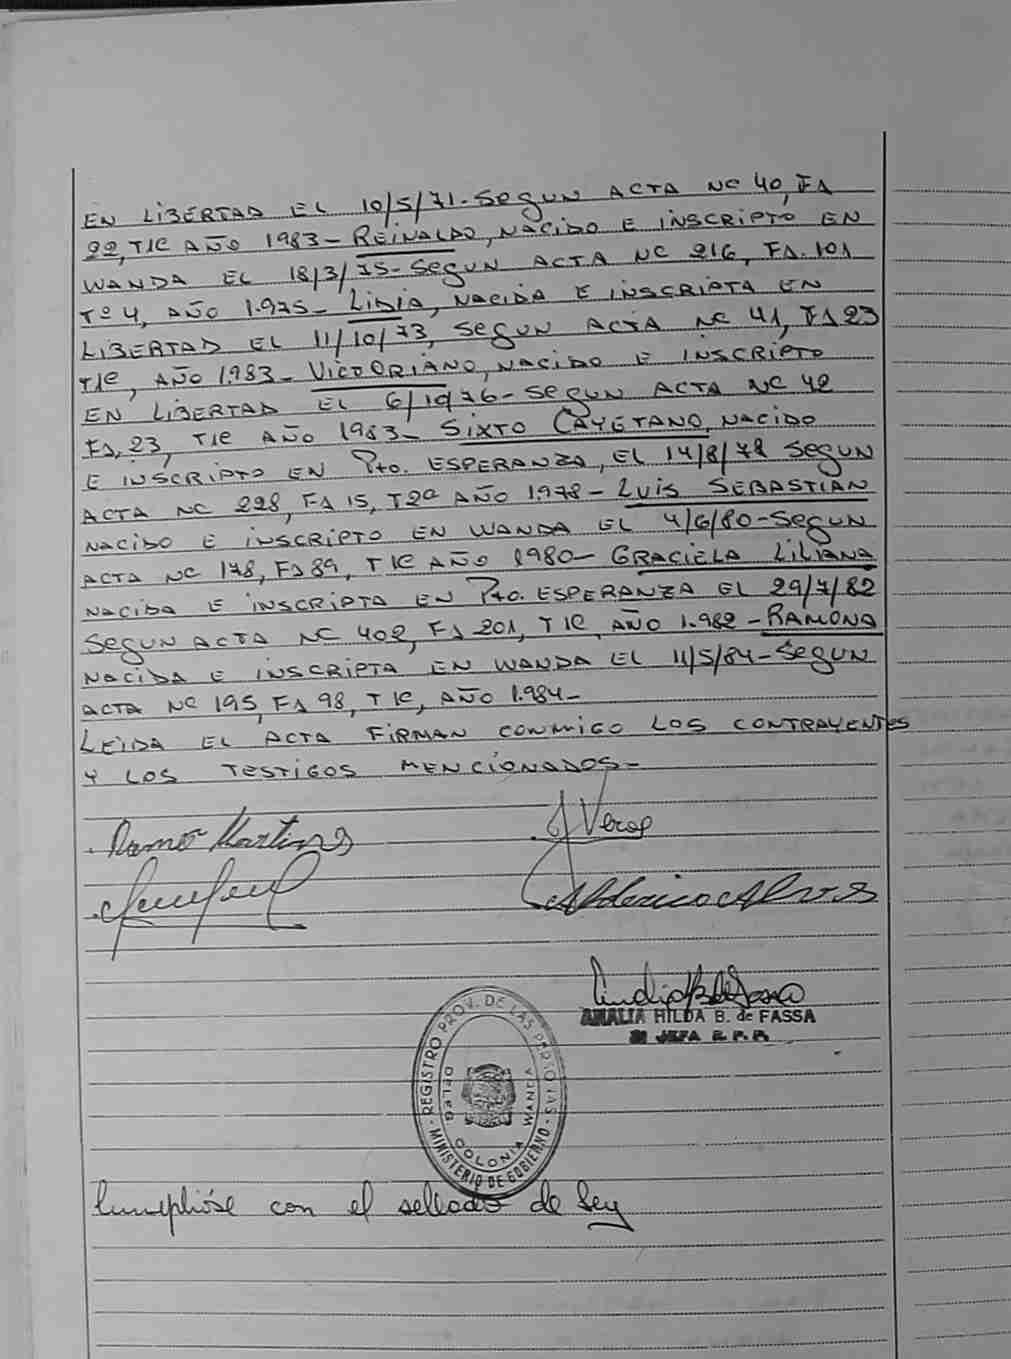 EN LIBERTAD EL 10/5/71- SEGUN ACTA Nº 40, Fº
22, T1º AÑO 1983- REINALDO, NACIDO E INSCRIPTO EN
WANDA EL 18/3/75- SEGUN ACTA Nº 216, Fº. 101
Tº 4, AÑO 1.975- LIDIA, NACIDA E INSCRIPTA EN
LIBERTAD EL 11/10/73, SEGUN ACTA Nº 41, Fº 23
T1º, AÑO 1983- VICTORIANO, NACIDO E INSCRIPTO
EN LIBERTAD EL 6/10/76- SEGUN ACTA Nº 42
Fº, 23, T1º AÑO 1983- SIXTO CAYETANO, NACIDO
E INSCRIPTO EN Pto. ESPERANZA, EL 14/8/78 SEGUN
ACTA Nº 228, Fº 15, T2º AÑO 1.978- LUIS SEBASTIAN
NACIDO E INSCRIPTO EN WANDA EL 4/6/80- SEGUN
ACTA Nº 178, Fº 89, T1º AÑO 1980- GRACIELA LILIANA
NACIDA E INSCRIPTA EN Pto. ESPERANZA EL 29/7/82
SEGUN ACTA Nº 402, Fº 201, T1º, AÑO 1.982- RAMONA
NACIDA E INSCRIPTA EN WANDA EL 11/5/84- SEGUN
ACTA Nº 195, Fº 98, T1º, AÑO 1.984-
LEIDA EL ACTA FIRMAN CONMIGO LOS CONTRAYENTES
Y LOS TESTIGOS MENCIONADOS-
AMALIA HILDA B. de FASSA
JEFA R.P.P.
REGISTRO PROV. DE LAS PERSONAS
DELEG. COLONIA WANDA
MINISTERIO DE GOBIERNO
Cumplióse con el sellado de ley